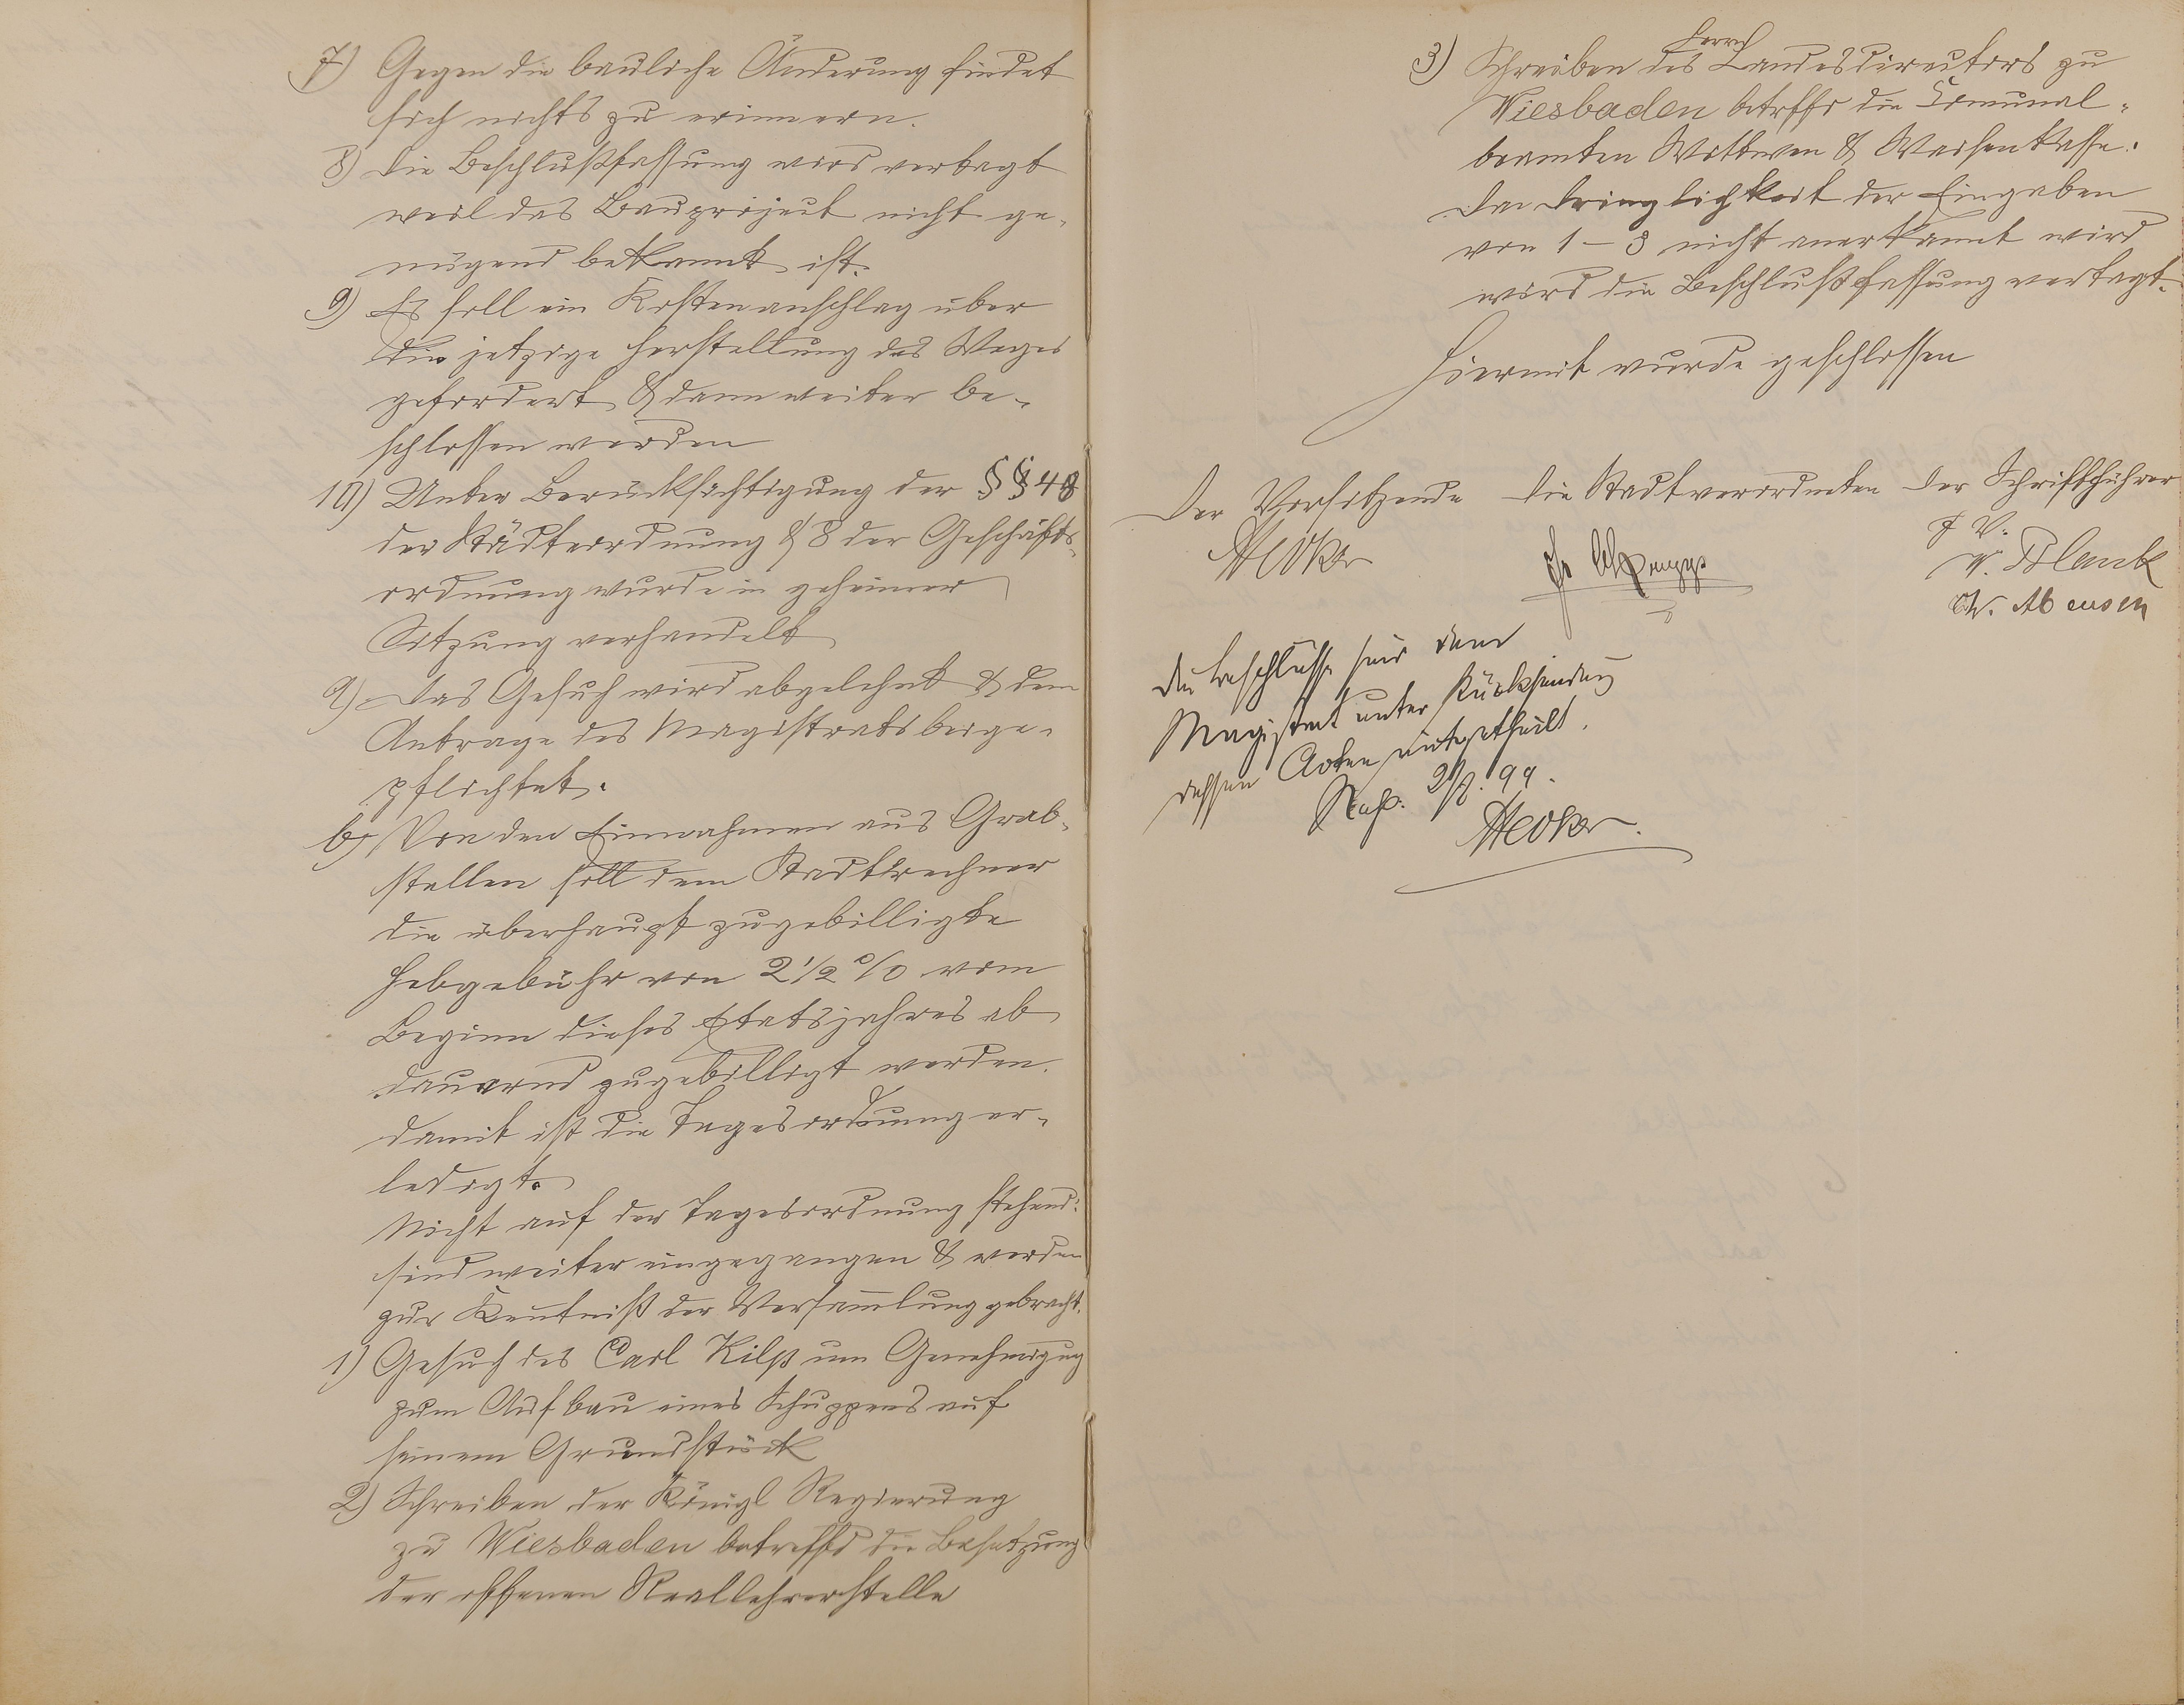 7) Gegen die bauliche Änderung findet
sich nichts zu erinnern.
8) Die Beschlußfassung wird vertagt
weil das Bauproject nicht ge-
nügend bekannt ist.
9) Es soll ein Kostenanschlag über
die jetzige Herstellung des Weges
gefordert & dann weiter be-
schlossen werden
10) Unter Berücksichtigung der §§ 48
der Städteordnung & 8 der Geschäfts-
ordnung wurde in geheimer
Sitzung verhandelt
a) Das Gesuch wird abgelehnt & dem
Antrage des Magistrats beige-
pflichtet.
b) Von den Einnahmen aus Grab-
stellen soll dem Stadtrechner
die überhaupt zugebilligte
Hebgebühr von 2 1/2 % vom
Beginn dieses Etatsjahres ab
dauernd zugebilligt werden.
Damit ist die Tagesordnung er-
ledigt.
Nicht auf der Tagesordnung stehend:
sind weiter eingegangen & werden
zur Kentniß der Versamlung gebracht.
1) Gesuch des Carl Kilp um Genehmigug
zum Aufbau eines Schuppens auf
seinem Grundstück
2) Schreiben der Königl Regierung
zu Wiesbaden betreffd die Besetzung
der offenen Reallehrerstelle
3) Schreiben des Herrn Landesdirectors zu
Wiesbaden betrffd die Comunal-
beamten Wittwen & Waisenkasse.
Da Dringlichkeit der Eingaben
von 1 – 3 nicht anerkannt wird
wird die Beschlußfassung vertagt.
Hiermit wurde geschlossen
Der Vorsitzende Die Stadtverordneten Der Schriftführer
J V.
Blank
W.
Die Beschlüsse sind dem
Magistrat unter Rücksendung
dessen Acten mitgetheilt.
99.